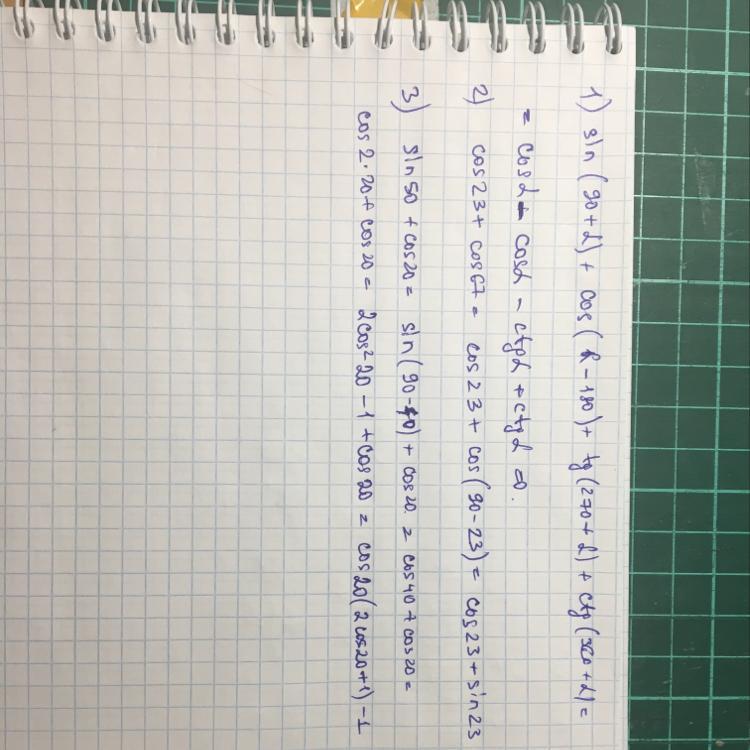 1) sin(90+α) + cos(α-180) + tg(270+α) + ctg(360+α) =
= cosα - cosα - ctgα + ctgα = 0.
2) cos23 + cos67 = cos23 + cos(90-23) = cos23 + sin23
3) sin50 + cos20 = sin(90-40) + cos20 = cos40 + cos20 =
cos2·20 + cos20 = 2cos²20 - 1 + cos20 = cos20(2cos20+1) - 1